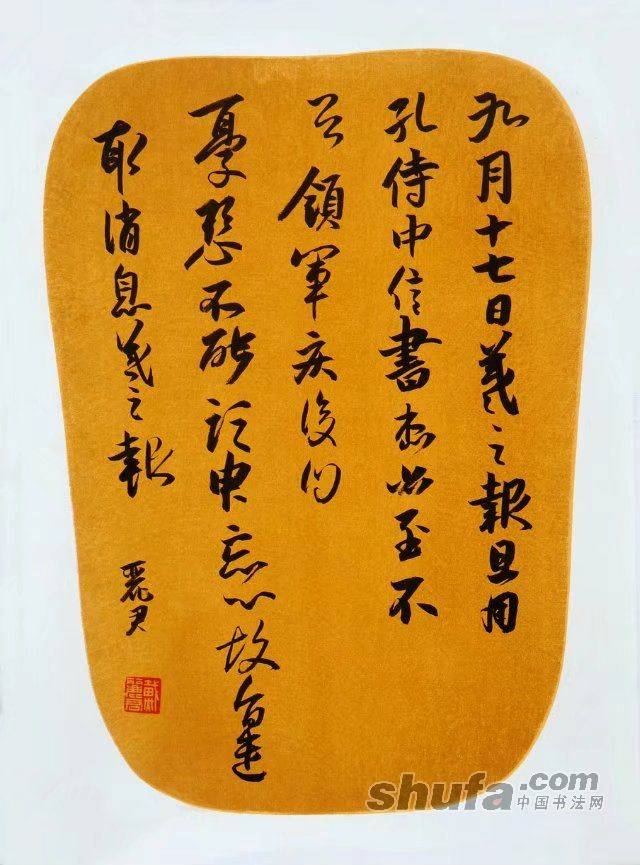 九月十七日羲之報且因
孔侍中信書想必至不
知領軍疾後問
憂懸不能須臾忘心故旨遣
取消息羲之報
麗君
shufa.com
中国书法网